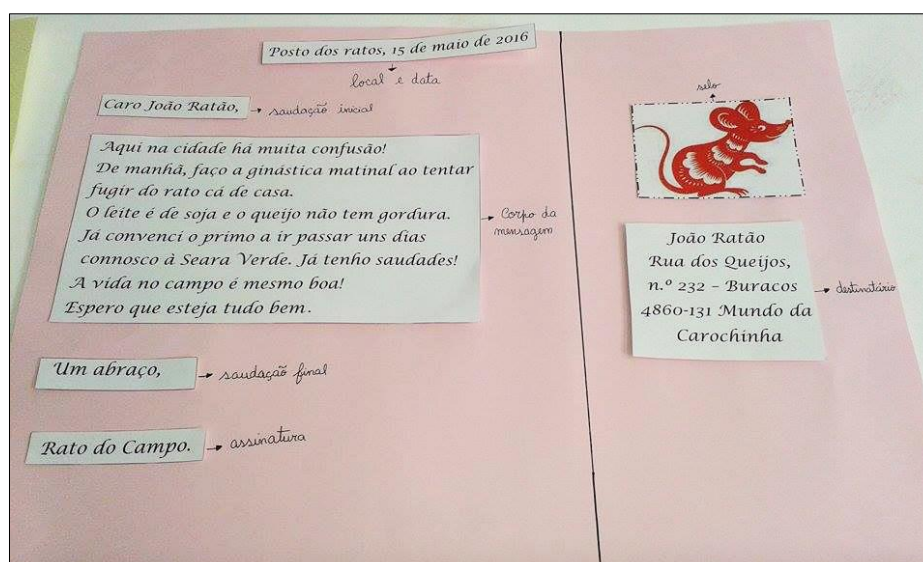 Posto dos ratos, 15 de maio de 2016
local e data
Caro João Ratão,
saudação inicial
Aqui na cidade há muita confusão!
De manhã, faço a ginástica matinal ao tentar
fugir do rato cá de casa.
O leite é de soja e o queijo não tem gordura.
Já convenci o primo a ir passar uns dias
connosco à Seara Verde. Já tenho saudades!
A vida no campo é mesmo boa!
Espero que esteja tudo bem.
Corpo da
mensagem
Um abraço,
saudação final
Rato do Campo.
assinatura
selo
João Ratão
Rua dos Queijos,
n.º 232 – Buracos
4860-131 Mundo da
Carochinha
destinatário